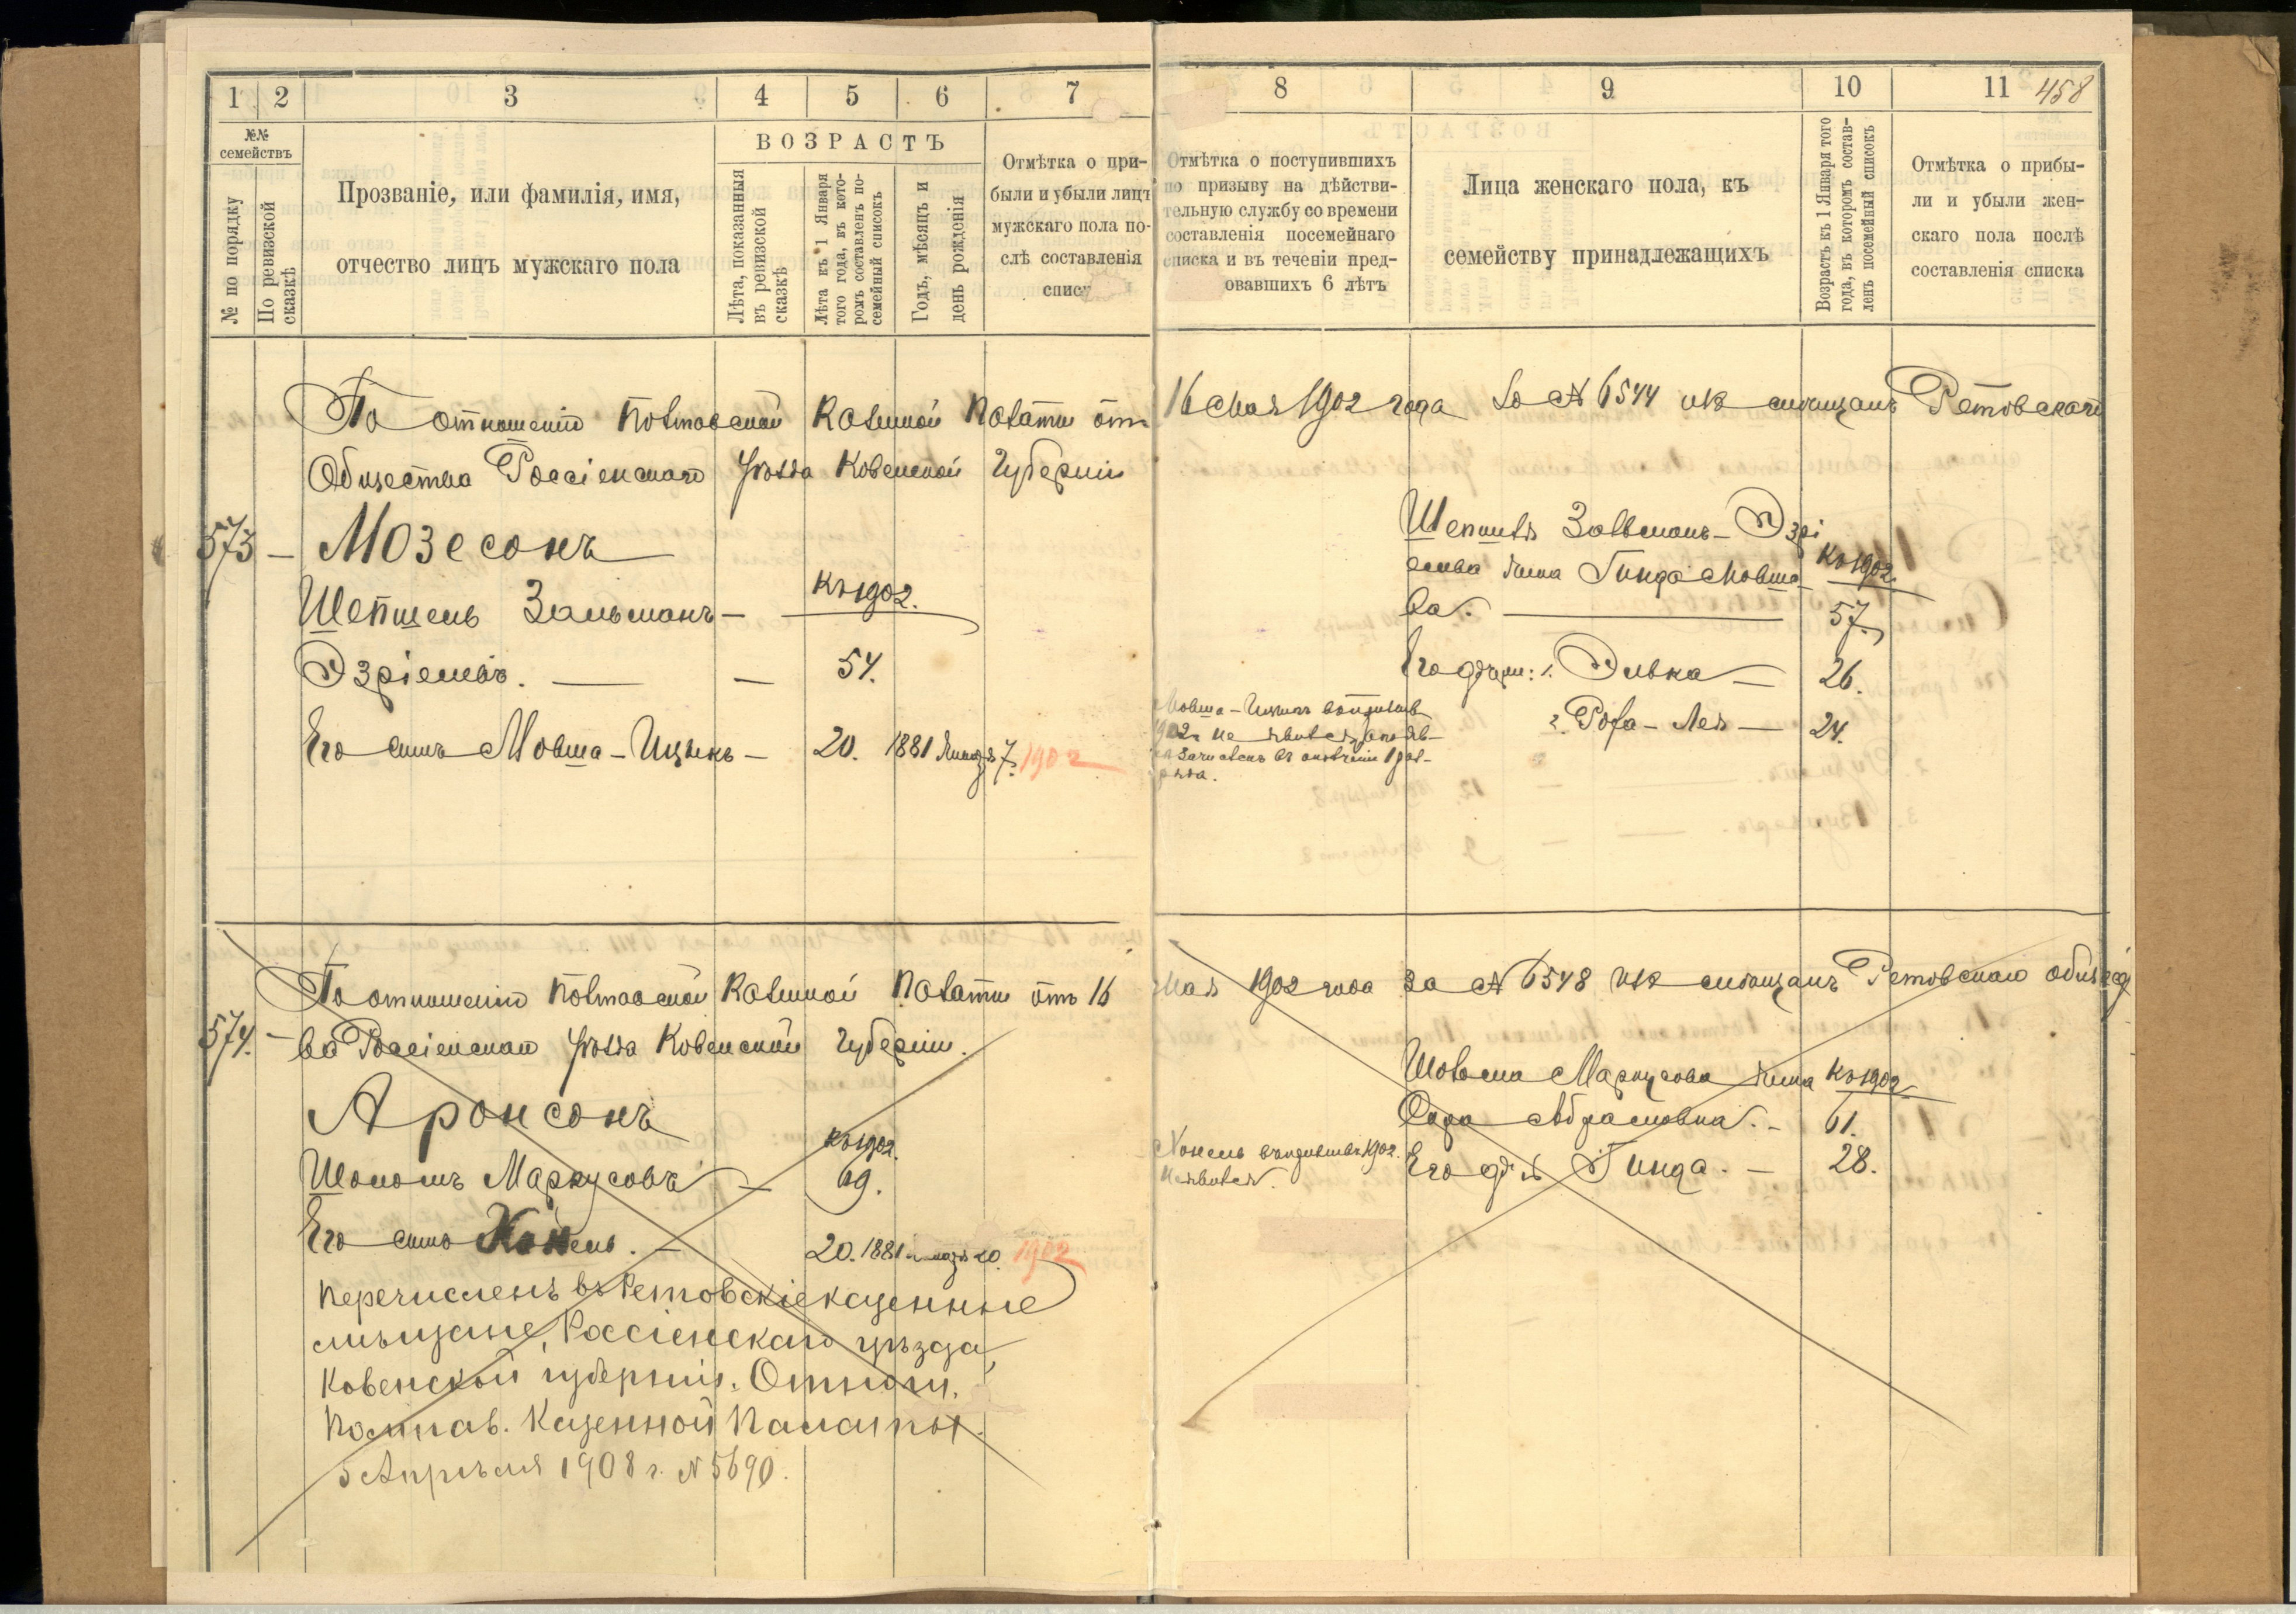 1 2 3 4 5 6 7
№№ семействъ
№ по порядку
По ревизской сказкѣ
Прозваніе, или фамилія, имя,
отчество лицъ мужскаго пола
ВОЗРАСТЪ
Лѣта, показанныя
въ ревизской
сказкѣ
Лѣта къ 1 Января
того года, въ кото-
ромъ составленъ по-
семейный списокъ
Годъ, мѣсяцъ и
день рожденія
Отмѣтка о при-
были и убыли лицъ
мужскаго пола по-
слѣ составленія
списк
8 9 10 11 458
Отмѣтка о поступившихъ
по призыву на дѣйстви-
тельную службу со времени
составленія посемейнаго
списка и въ теченіи пред-
овавшихъ 6 лѣтъ
Лица женскаго пола, къ
семейству принадлежащихъ
Возрастъ къ 1 Января того
года, въ которомъ состав-
ленъ посемейный списокъ
Отмѣтка о прибы-
ли и убыли жен-
скаго пола послѣ
составленія списка
По отношенію Полтавской Казенной Палаты отъ 16 Мая 1902 года за № 6544 изъ мѣщанъ Ретовскаго
Общества Россіенскаго Уѣзда Ковенской Губерніи
573 — Мозесонъ
Шепшель Зальманъ —
Къ 1902.
Эзріелевъ. — — 54.
Его сынъ Мовша-Ицыкъ — 20. 1881 7. 1902
Шепшеля Зальманъ-Эзрі
елева жена Гинда Мовшо
Къ 1902.
ва. — 57.
Его дочери: 1. Элька — 26.
2. Роха-Лея — 24.
Мовша-Ицыкъ
1902 г. не явился
зачисленъ въ ополченіе
По отношенію Полтавской Казенной Палаты отъ 16 мая 1902 года за № 6548 изъ мѣщанъ Ретовскаго общест
574. — ва Россіенскаго Уѣзда Ковенской Губерніи.
Аронсонъ
Къ 1902.
Шоломъ Маркусовъ — 69.
Его сынъ Хонель. — 20. 1881 20. 1902
Перечисленъ въ Ретовскіе казенные
мѣщане, Россіенскаго уѣзда,
Ковенской губерніи. Отнош.
Полтав. Казенной Палаты.
5 Апрѣля 1908 г. № 5690.
Шолома Маркусова жена Къ 1902
Сора Абрамовна. — 61.
Его дочь Гинда. — 28.
Хонель въ призывъ 1902.
не явился.